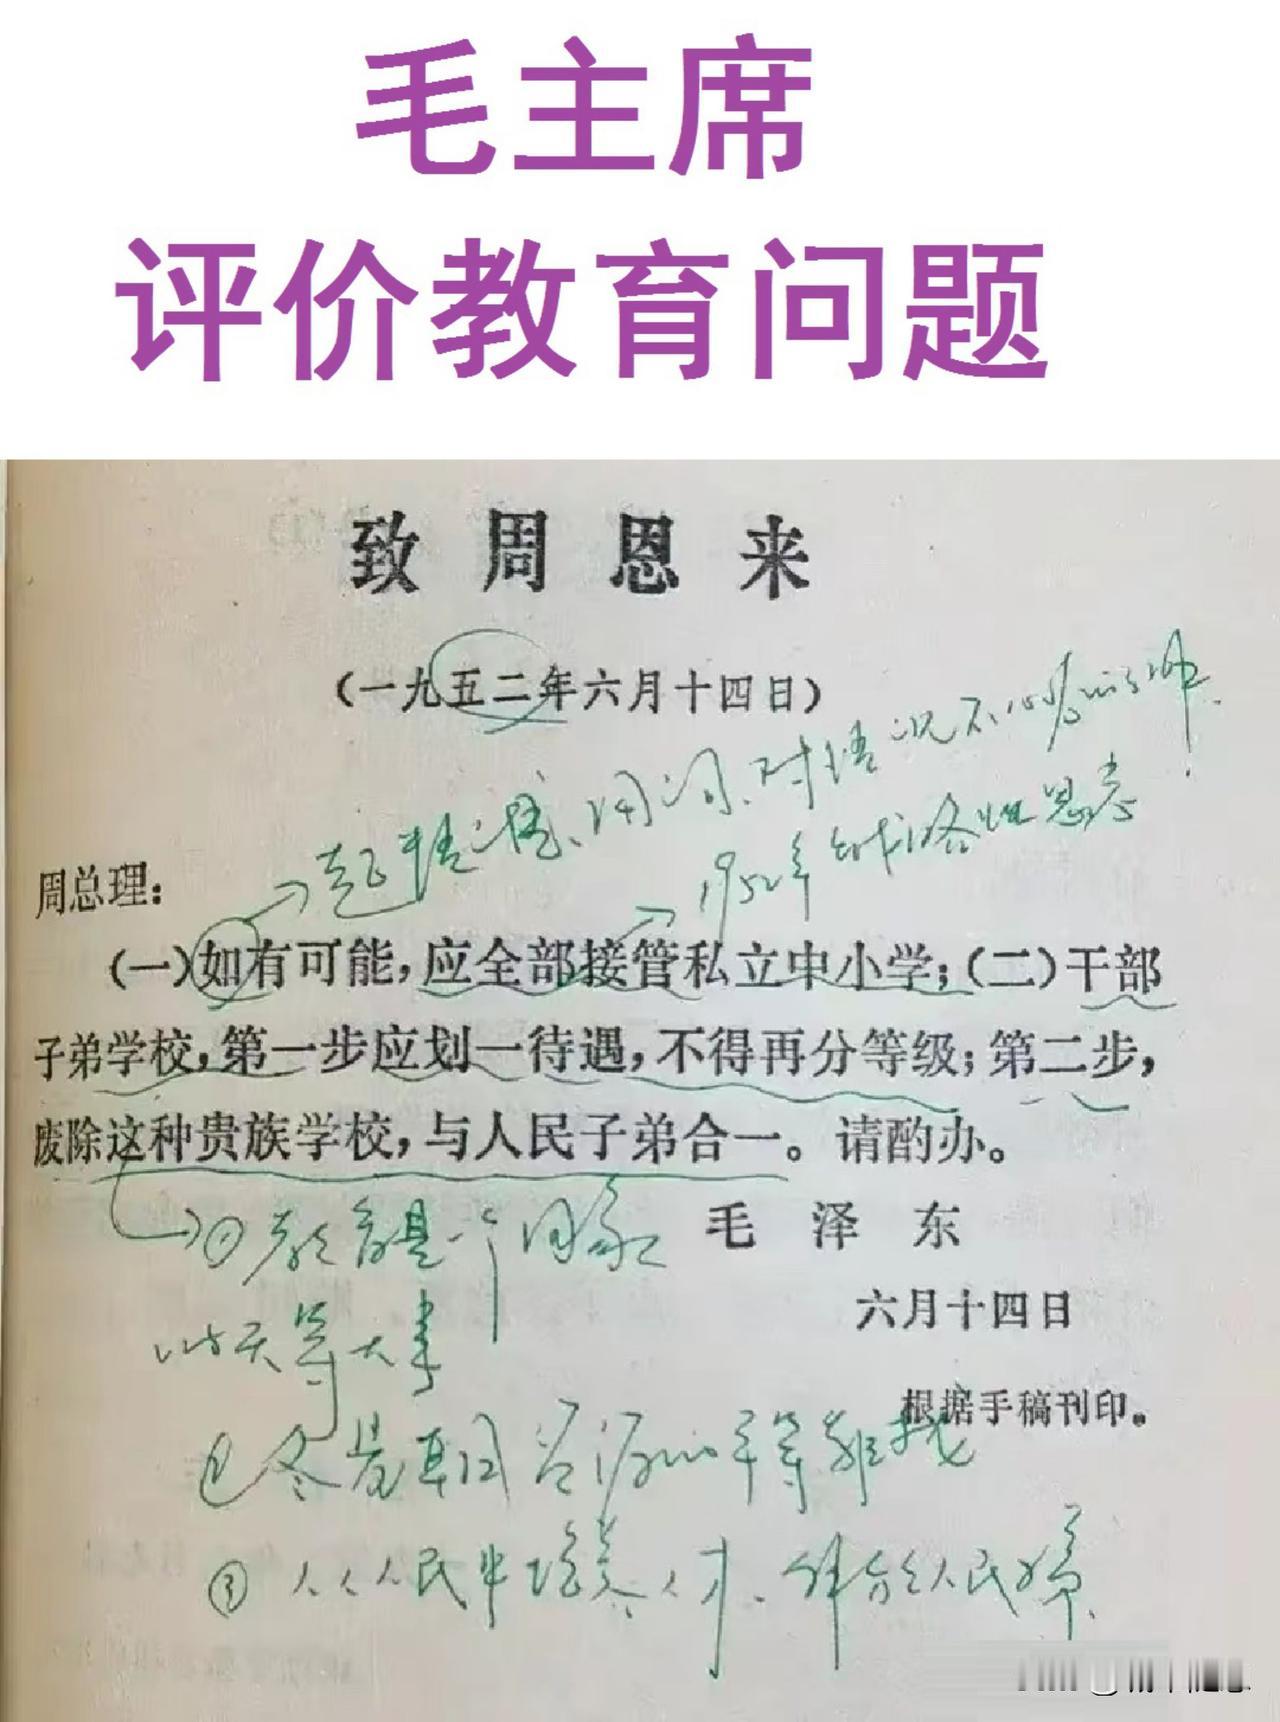 毛主席
评价教育问题
致周恩来
(一九五二年六月十四日)
1952年战略性思考
周总理:
(一)如有可能,应全部接管私立中小学;(二)干部
子弟学校,第一步应划一待遇,不得再分等级;第二步,
废除这种贵族学校,与人民子弟合一。请酌办。
①教育是一个国家
毛泽东
的天等大事
六月十四日
根据手稿刊印。
③从人民中培养人才、